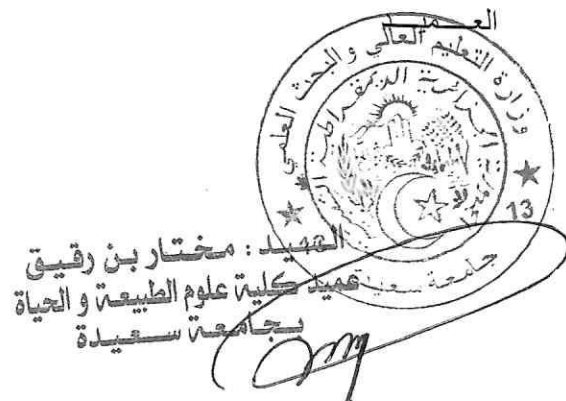 العميد
وزارة التعليم العالي و البحث العلمي
الجمهورية الجزائرية الديمقراطية
13
جامعة سعيدة
العميد : مختار بن رقيق
عميد كلية علوم الطبيعة و الحياة
بجامعة سعيدة